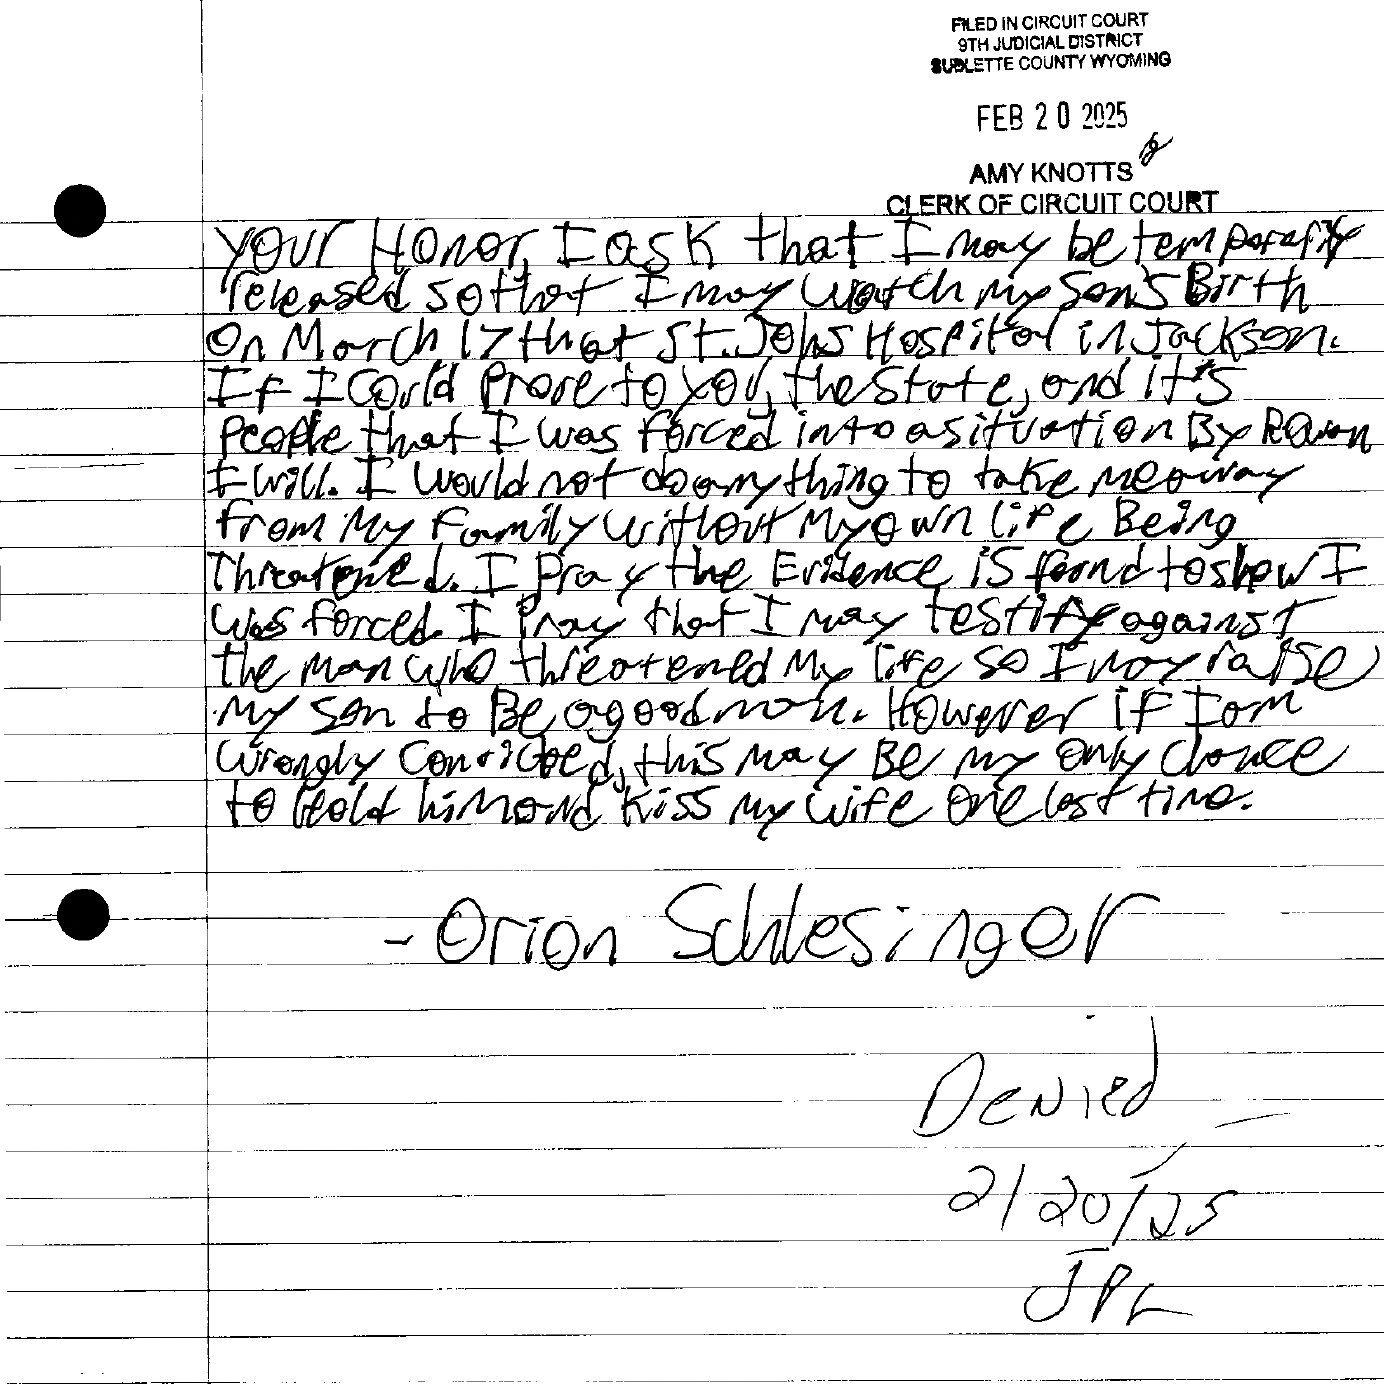 FILED IN CIRCUIT COURT
9TH JUDICIAL DISTRICT
SUBLETTE COUNTY WYOMING
FEB 20 2025
AMY KNOTTS
CLERK OF CIRCUIT COURT
Your Honor, I ask that I may be temporarily
released so that I may watch my son's Birth
On March 17th at St. Johs Hospital in Jackson.
If I Could Prove to you, the State, and it's
People that I was forced into a situation By Rowan
I will. I would not do anything to take me away
from My Family without My own life Being
Threatened. I Pray the Evidence is found to show I
was forced. I Pray that I may testify against
the man who threatened My life so I may raise
My son to Be a good man. However if I am
wrongly Convicted, this may Be my only chance
to Hold him and Kiss my wife One last time.
- Orion Schlesinger
Denied
2/20/25
JPL